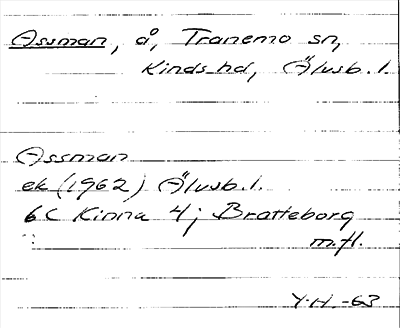 Assman, å, Tranemo sn,
Kinds hd, Älvsb. l.
Assman
ek (1962) Älvsb. l.
6C Kinna 4; Bratteborg
m.fl.
Y.H. -63